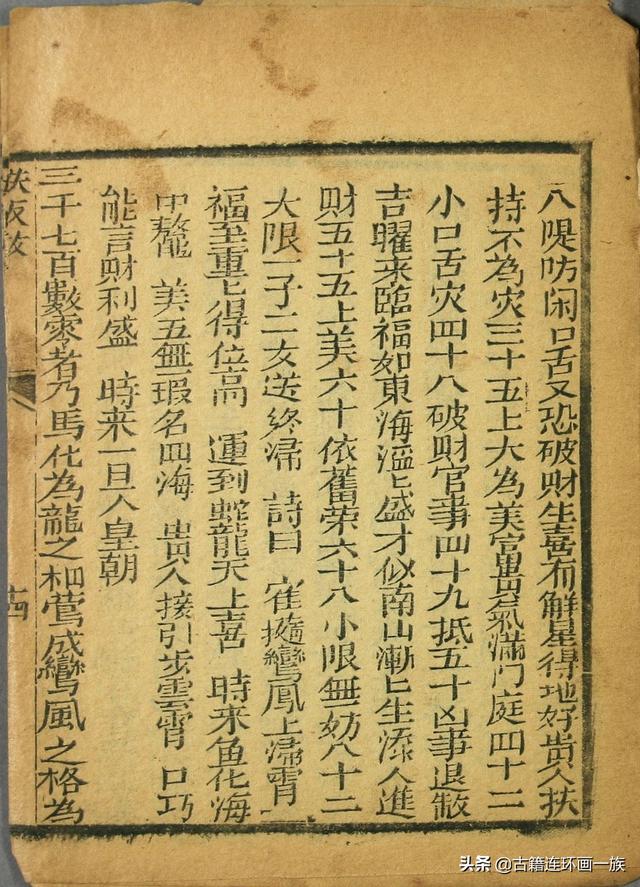 八隄防闲口舌又恐破財生喜有解星得地好贵人扶
持不為灾三十五上大為美富貴氣滿门庭四十二
小口舌灾四十八破財官事四十九抵五十凶事退散
吉曜来臨福如東海滔匕盛才似南山漸匕生添人進
財五十五上美六十依舊荣六十八小限無妨八十二
大限一子二女送终歸 詩曰 隨鸞鳳上歸霄
福至重匕得位高 運到蛇龍天上喜 時来鱼化海
中鰲 美五無瑕名四海 贵人接引步雲霄 口巧
能言財利盛 時来一旦人皇朝
三千七百數零者乃馬化為龍之相鶯成鸞風之格為
十四
头条 @古籍连环画一族